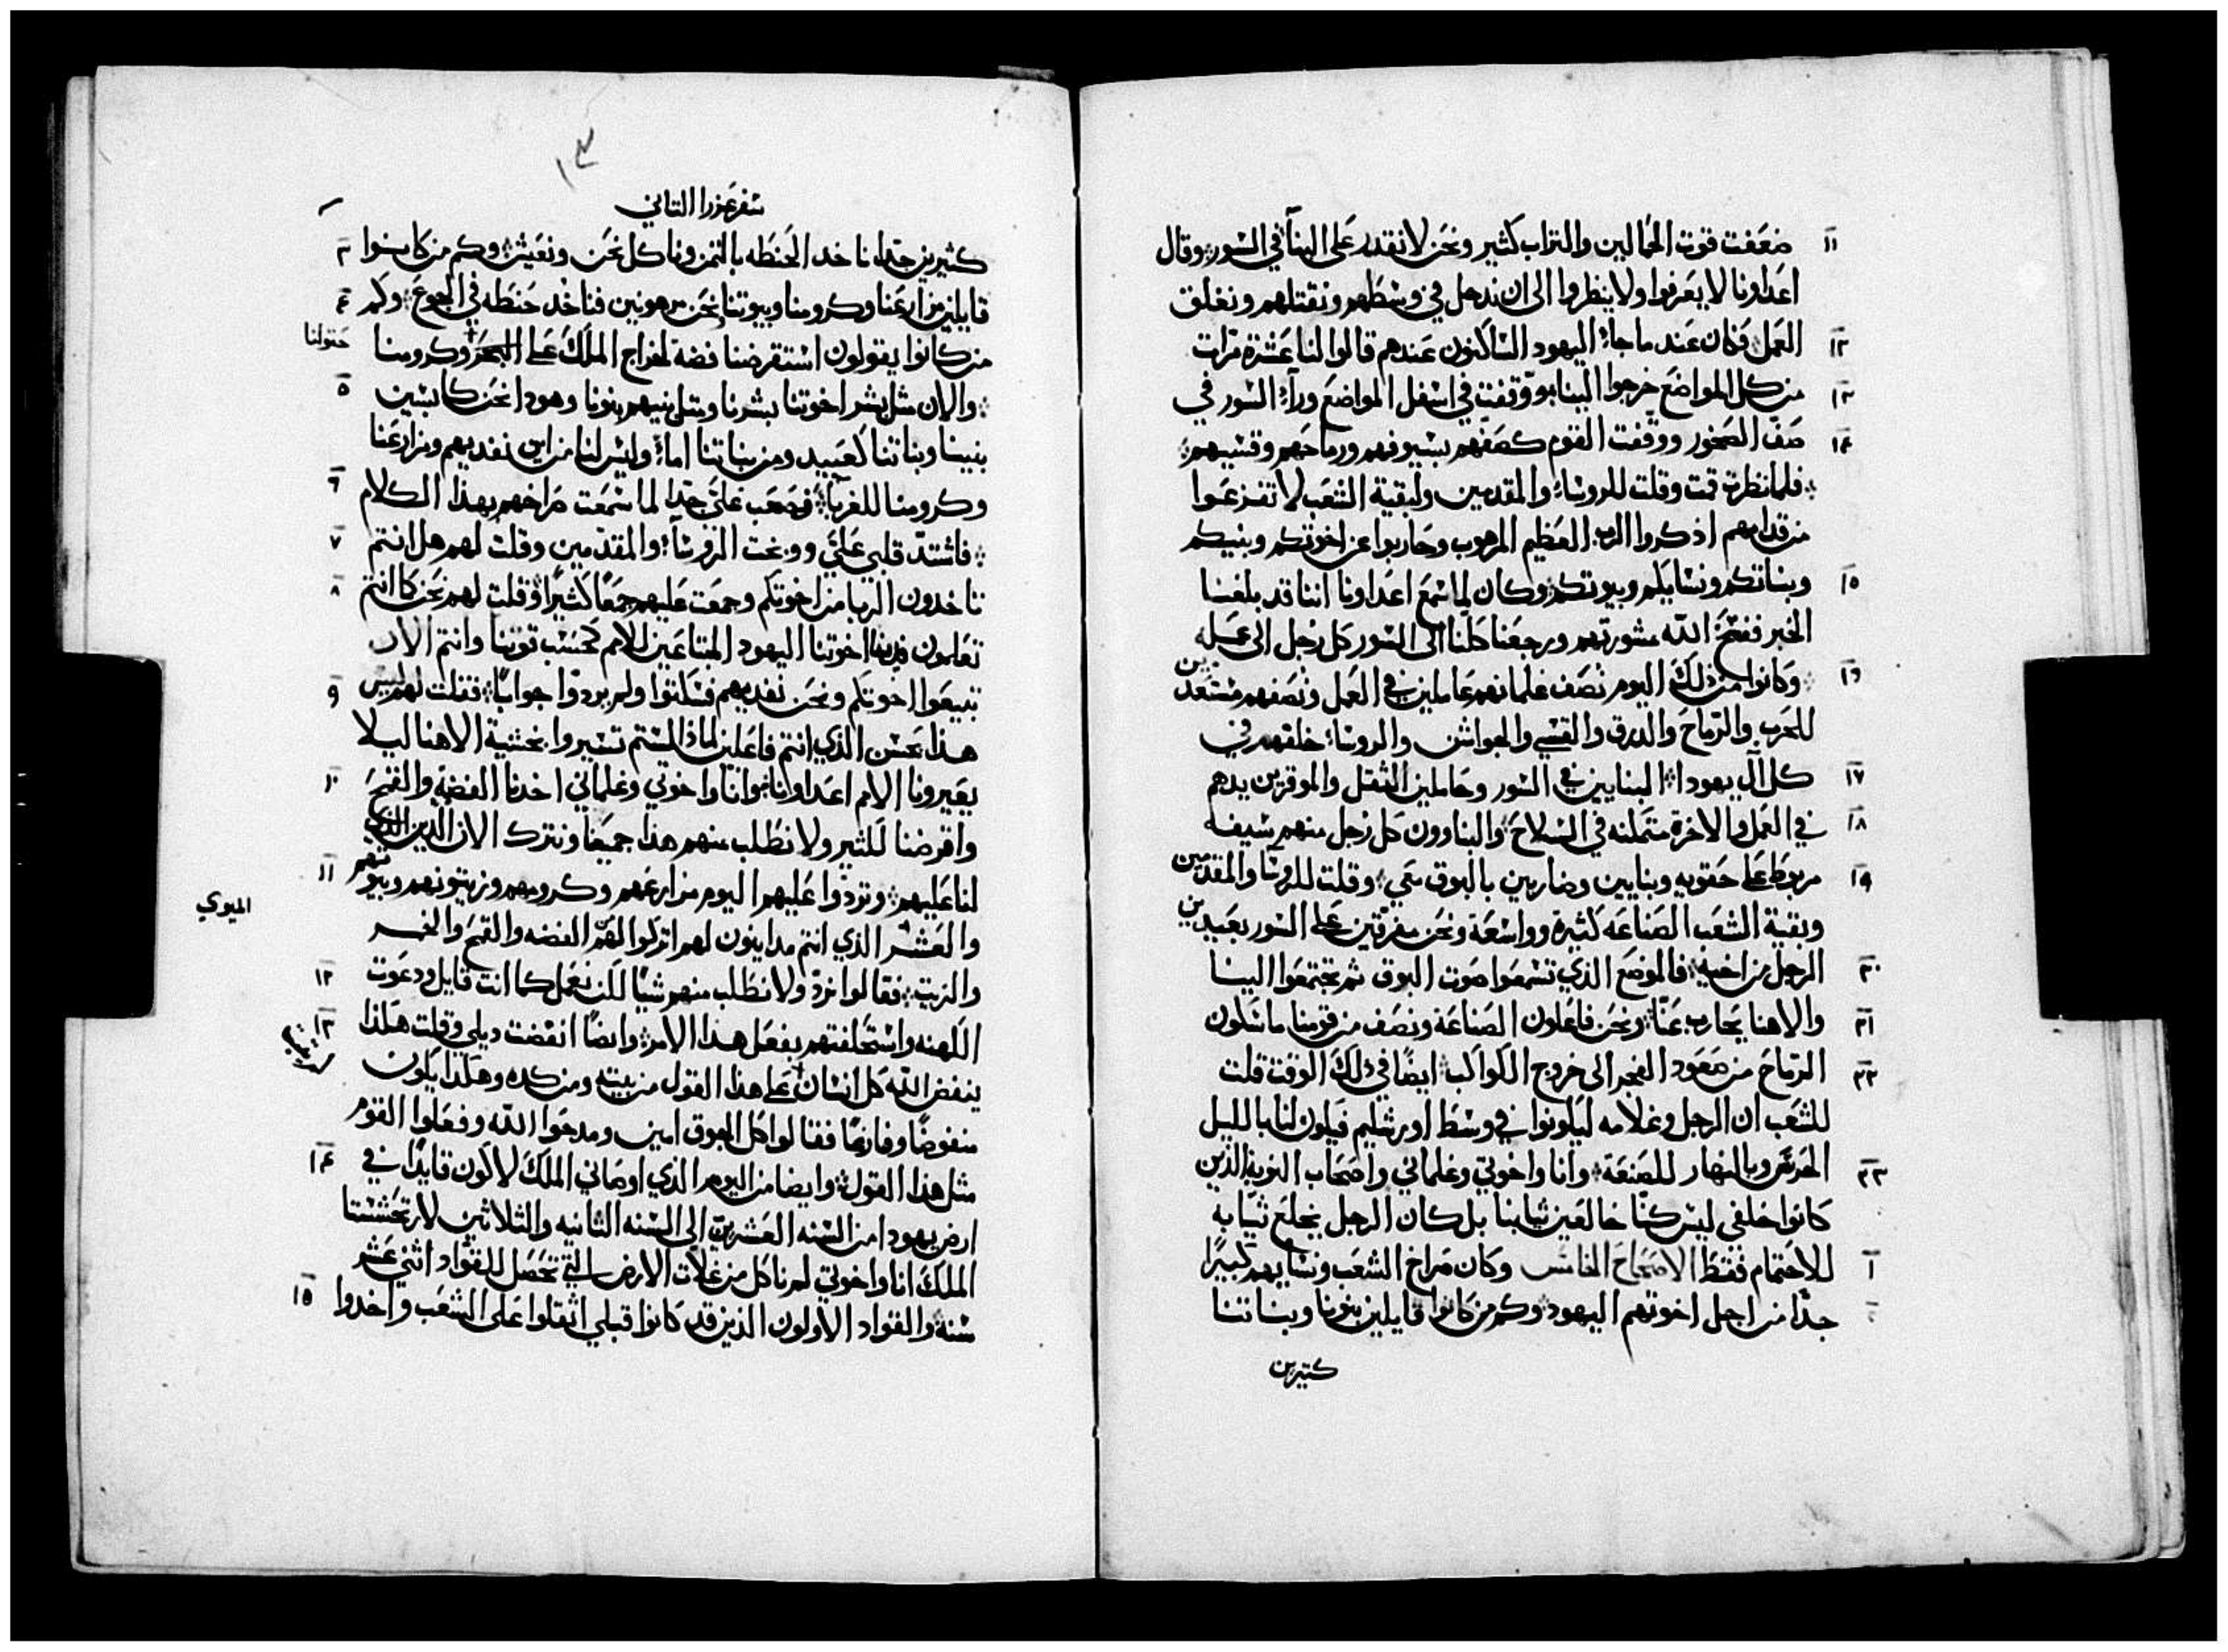 ١١ ضعفت قوت الحمالين والتراب كثير ونحن لا نقدر على البنآ في السور وقال
اعداونا لا يعرفوا ولا ينظروا الى ان ندخل في وسطهم ونقتلهم ونغلق
١٢ العمل فكان عند ما جاء اليهود الساكنون عندهم قالوا لنا عشرة مرات
١٣ من كل المواضع خرجوا الينا ووقفت في اسفل المواضع ورآء السور في
١٤ صف الصخور ووقفت القوم كصفهم بسيوفهم ورماحهم وقسيهم
فلما نظرت قمت وقلت للروساء والمقدمين ولبقية الشعب لا تفزعوا
من قدامهم اذكروا الرب العظيم المرهوب وحاربوا عن اخوتكم وبنيكم
١٥ وبناتكم ونسايكم وبيوتكم وكان لما سمع اعداونا اننا قد بلغنا
الخبر ففسخ الله مشورتهم ورجعنا كلنا الى السور كل رجل الى عمله
١٦ وكانوا من ذلك اليوم نصف غلمانهم عاملين في العمل ونصفهم مستعدين
للحرب والرماح والدرق والقسي والجواشن والروساء خلفهم في
١٧ كل آل يهودا البنايين في السور وحاملين الثقل والموقرين يدهم
١٨ في العمل والاخرة متمكنه في السلاح والبناوون كل رجل منهم سيفه
١٩ مربوط على حقويه وبنايين وضاربين بالبوق معي وقلت للروسا والمقدمين
وبقية الشعب الصناعه كثيرة وواسعة ونحن مفرقين على السور بعيدين
٢٠ الرجل من اخيه فالموضع الذي تسمعوا صوت البوق ثم تجتمعوا الينا
٢١ والاهنا يحارب عنا ونحن فاعلون الصناعة ونصف من قومنا ماسكون
٢٢ الرماح من صعود الفجر الى خروج الكواكب ايضا في ذلك الوقت قلت
للشعب ان الرجل وغلامه ليكونوا في وسط اورشليم فيكون لنا بالليل
٢٣ الحرس وبالنهار للصنعة وانا واخوتي وغلماني واصحاب النوبة الذين
كانوا خلفي ليس كنا خالعين ثيابنا بل كان الرجل يخلع ثيابه
١ للاحتمام فقط الاصحاح الخامس وكان صراخ الشعب ونسايهم كبيرًا
٢ جدا من اجل اخوتهم اليهود وكم من كانوا قايلين بنونا وبناتنا
كتيرين
١٣
سفر عزرا التاني
٣ كثيرين جدا ناخد الحنطه بالتمن وناكل نحن ونعيش وكم من كانوا
٤ قايلين مزارعنا وكرومنا وبيوتنا نحن مرهونين فناخد حنطه في الجوع وكم
من كانوا يقولون استقرضنا فضة لخراج الملك على وكرومنا
حقولنا
٥ والان مثل بشر اخوتنا بشرنا ومثل بنيهم بنونا وهودا نحن كابسين
بنينا وبناتنا كعبيد ومن بناتنا اماء وليس لنا من اين نفديهم ومزارعنا
٦ وكرومنا للغربآء فصعب علي جدا لما سمعت صراخهم بهذا الكلام
٧ فاشتد قلبي علي ووبخت الروساء والمقدمين وقلت لهم هل انتم
٨ تاخدون الربا من اخوتكم وجمعت عليهم جمعا كثيرا وقلت لهم نحن كا انتم
تعلمون فدينا اخوتنا اليهود المتباعين للامم كحسب قوتنا وانتم الان
٩ تبيعوا اخوتكم ونحن نفديهم فسكتوا ولم يردوا جوابا فقلت لهم ليس
هذا بحسن الذي انتم فاعلين لماذا لستم تسيروا بخشية الاهنا ليلا
١٠ يعيرونا الامم اعداونا وانا واخوتي وغلماني اخدنا الفضة والقمح
واقرضنا للثير ولا نطلب منهم هذا جميعا ونترك الان الدين الذي
١١ لنا عليهم وتردوا عليهم اليوم مزارعهم وكرومهم وزيتونهم وبيوتهم
والعشر الذي انتم مداينون لهم اتركوا لهم الفضه والقمح والخمر
الميوي
١٢ والزيت فقالوا نرد ولا نطلب منهم شيا لكن نعمل كما انت قايل ودعوت
١٣ الكهنه واستحلفتهم بفعل هذا الامر وايضا انفضت ديلي وقلت هكذا
ينفض الله كل انسان على هذا القول من بيته ومن كده وهكذا يكون
منفوضا وفارغا فقالوا كل الجوق امين ومدحوا الله وفعلوا القوم
١٤ مثل هذا القول وايضا من اليوم الذي اوصاني الملك لاكون قايدا في
ارض يهودا من السنه العشرين الى السنه الثانيه والثلاثين لارتحشستا
الملك انا واخوتي لم ناكل من غلات الارض التي تحصل للقواد اثني عشر
١٥ سنه والقواد الاولون الذين قد كانوا قبلي اثقلوا على الشعب واخدوا